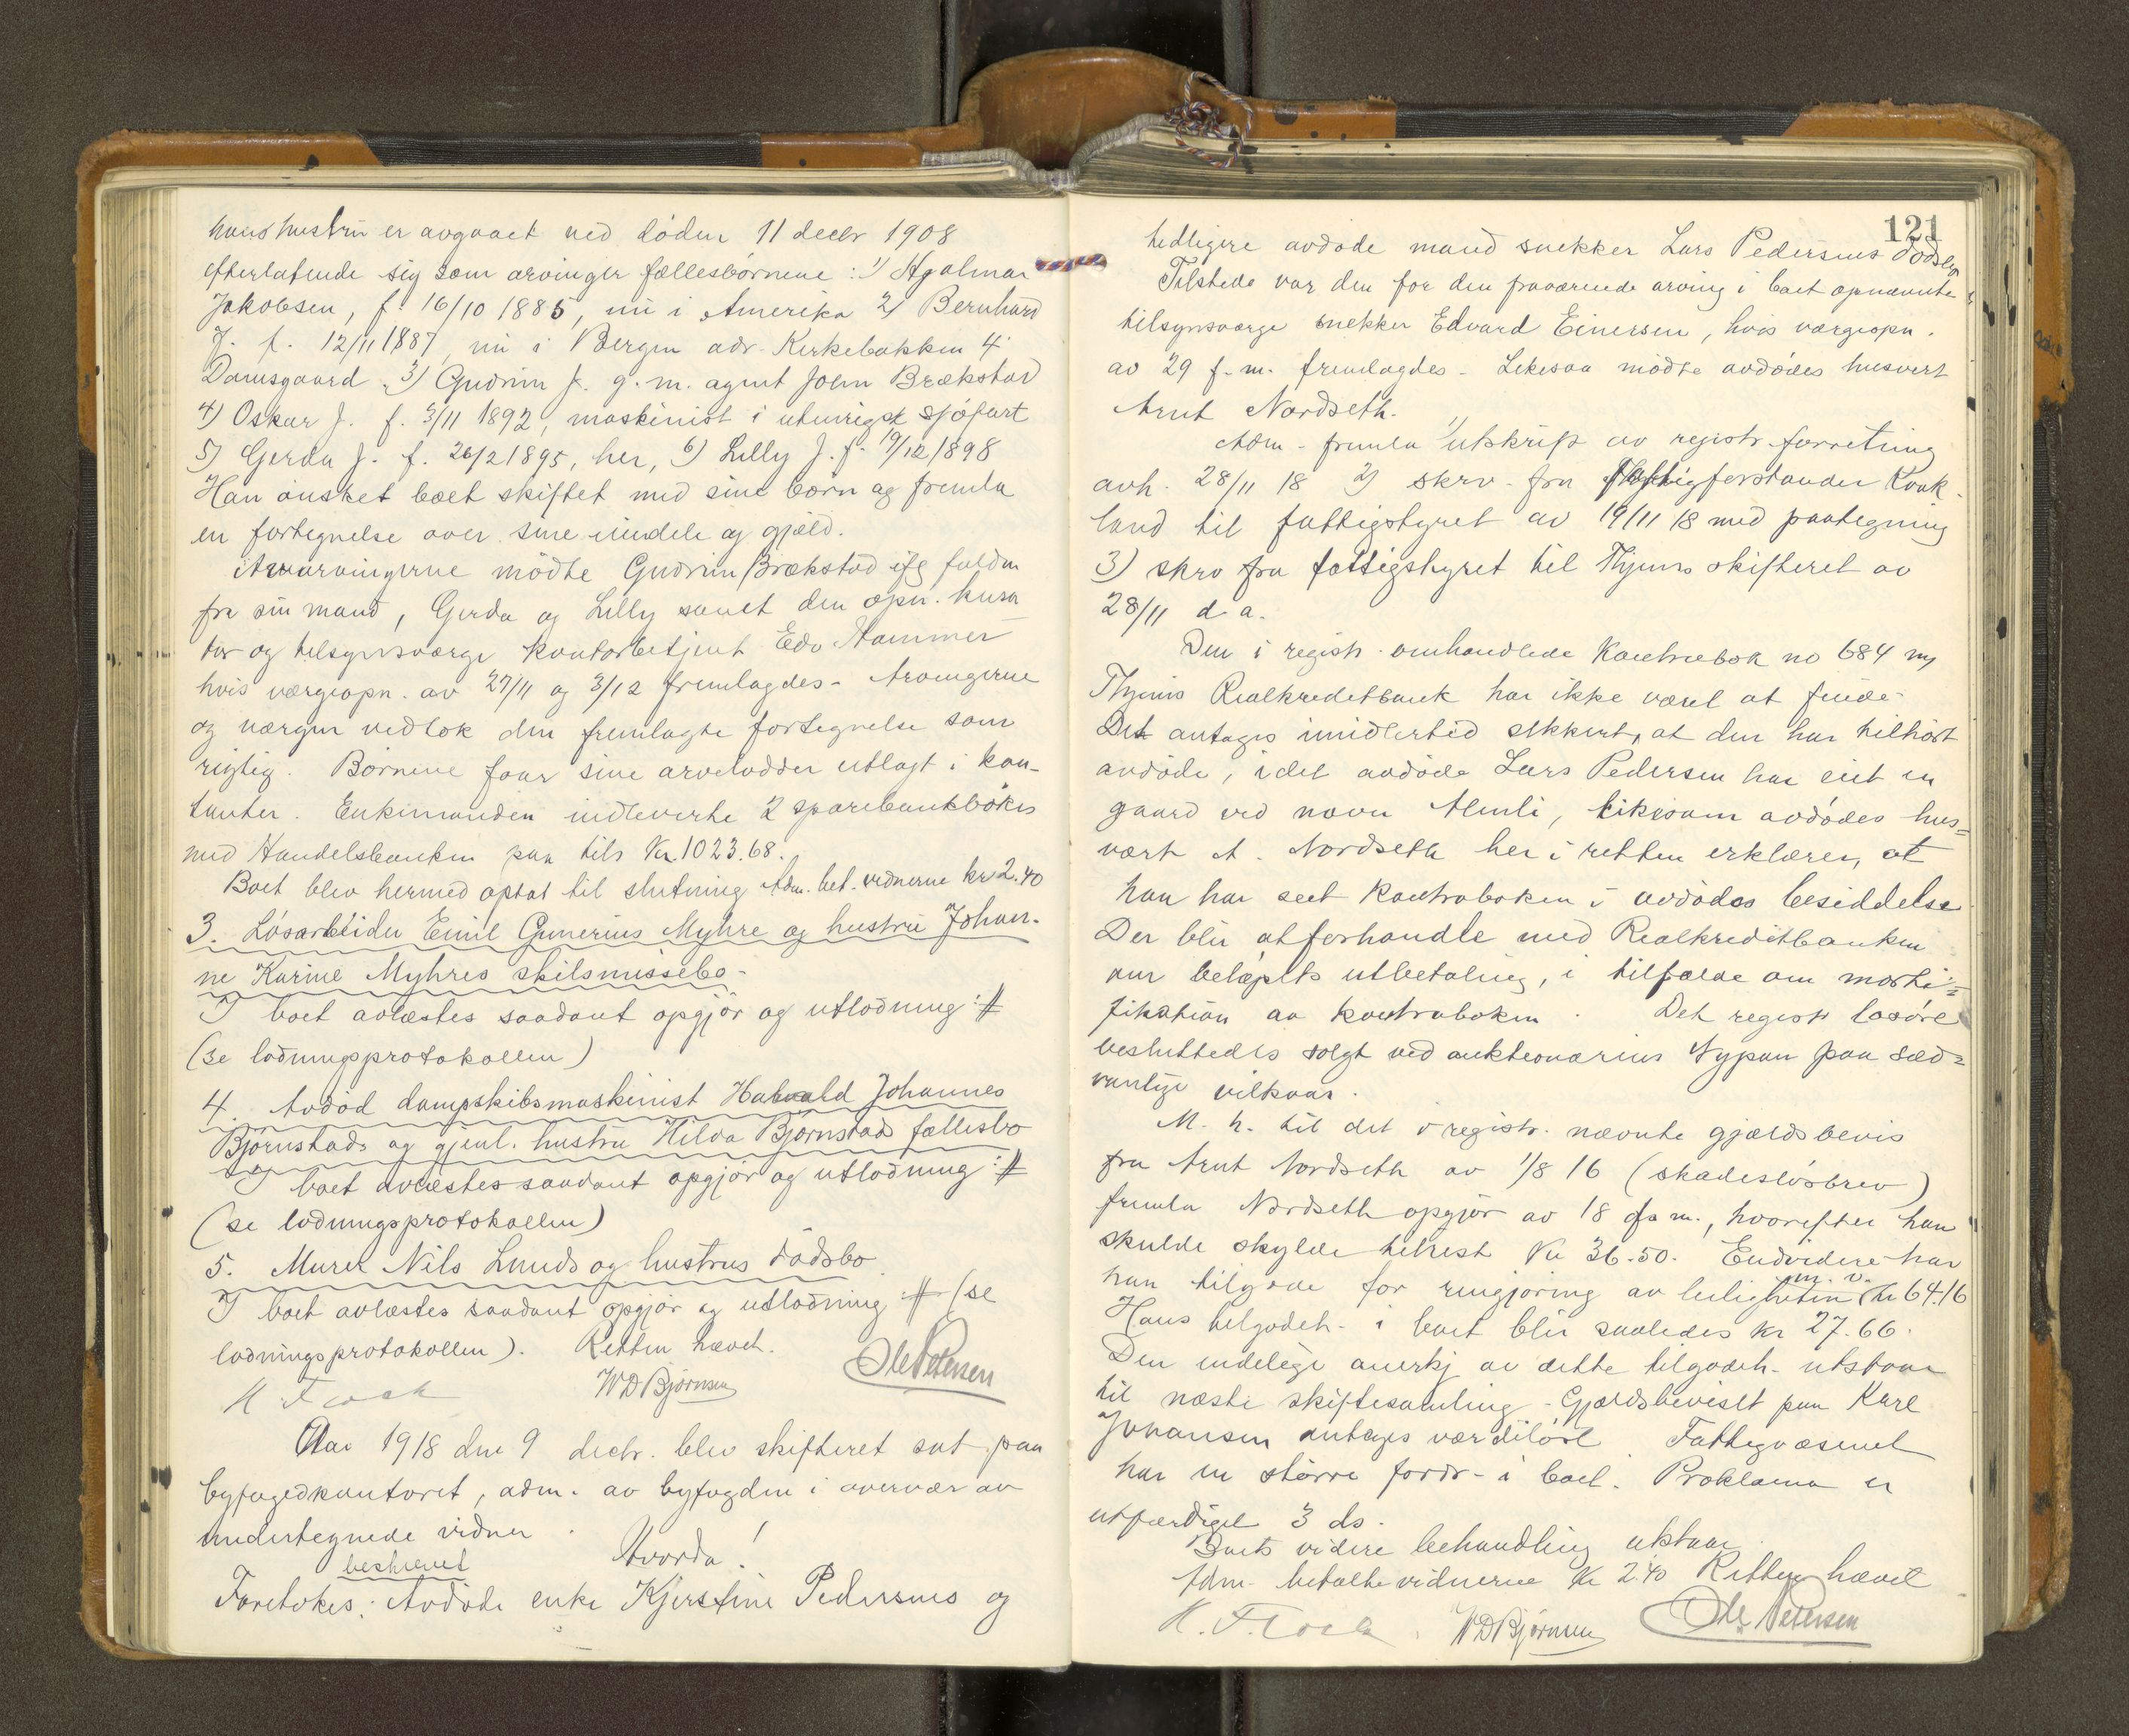 hans hustru er avgaaet ved døden 11 decbr 1908
efterlatende sig som arvinger fællesbørnene: 1) Hjalmar
Jakobsen, f. 16/10 1885, nu i Amerika 2) Bernhard
J. f. 12/11 1887, nu i Bergen adr. Kirkebakken 4
Damsgaard. 3) Gudrun J. g. m. agent John Brækstad
4) Oskar J. f. 3/11 1892, maskinist i utenrigsk sjøfart
5) Gerda J. f. 26/2 1895, her, 6) Lilly J. f. 19/12 1898
Han ønsket boet skiftet med sine børn og fremla
en fortegnelse over sine eiendele og gjæld.
Av arvingerne mødte Gudrun Brækstad
fra sin mand, Gerda og Lilly samt den opn. kura
tor og tilsynsværge kontorbetjent Edv Hammer
hvis værgeopn. av 27/11 og 3/12 fremlagdes. Arvingerne
og værgen vedtok den fremlagte fortegnelse som
rigtig. Børnene faar sine arvelodder utlagt i kon-
tanter. Enkemanden indleverte 2 sparebankbøker
med Handelsbanken paa tils Kr. 1023.68.
Boet blev hermed optat til slutning Adm. bet. vidnerne kr 2.40
3. Løsarbeider Emil Gunerius Myhre og hustru Johan-
ne Karine Myhres skilsmissebo.
I boet avlæstes saadant opgjør og utlodning: #
(se lodningsprotokollen)
4. Avdød dampskibsmaskinist Habvald Johannes
Bjørnstads og gjenl. hustru Hilda Bjørnstads fællesbo
I boet avlæstes saadant opgjør og utlodning: #
(se lodningsprotokollen)
5. Murer Nils Lunds og hustrus dødsbo.
I boet avlæstes saadant opgjør og utlodning # (se
lodningsprotokollen). Retten hævet.
WDBjørnsen Ole Petersen
Aar 1918 den 9 decbr. blev skifteret sat paa
byfogedkontoret, adm. av byfogden i overvær av
undertegnede vidner.
beskrevet Hvorda!
Foretokes: Avdøde enke Kjerstine Pedersens og
121
tidligere avdøde mand snekker Lars Pedersens dødsbo
Tilstede var den for den fraværende arving i boet opnævnte
tilsynsværge snekker Edvard Einersen, hvis værgeopn.
av 29 f. m. fremlagdes. Likesaa mødte avdødes husvert
Arnt Nordseth.
Adm. fremla 1) utskrift av registr. forretning
avh. 28/11 18 2) skrv. fra fattigforstander Kvak-
land til fattigstyret av 19/11 18 med paategning
3) skrv fra fattigstyret til Thjems skifteret av
28/11 d. a.
Den i registr. omhandlede Kontrabok no 684 m/
Thjems Realkreditbank har ikke været at finde.
Det antages imidlertid sikkert, at den har tilhørt
avdøde, idet avdøde Lars Pedersen har eiet en
gaard ved navn Almli, likesom avdødes hus=
vært A. Nordseth her i retten erklærer, at
han har seet kontraboken i avdødes besiddelse.
Der blir at forhandle med Realkreditbanken
om beløpets utbetaling, i tilfælde om morti=
fikation av kontraboken. Det registr løsøre
besluttedes solgt ved auktionarius Nypan paa sæd=
vanlige vilkaar.
M. h. til det i registr. nævnte gjældsbevis
fra Arnt Nordseth av 1/8 16 (skadesløsbrev)
fremla Nordseth opgjør av 18 f. m., hvorefter han
skulde skylde tilrest Kr 36.50. Endvidere har
han tilgode for rengjøring av leiligheten m. v. kr 64.16
Hans tilgodeh. i boet blir saaledes kr 27.66.
Den endelige anerkj av dette tilgodeh. utstaar
til næste skiftesamling. Gjældsbeviset paa Karl
Johansen antages værdiløst. Fattigvæsenet
har en større fordr. i boet. Proklama er
utfærdiget 3 ds.
Boets videre behandling utstaar.
Adm. betalte vidnerne Kr 2.40 Retten hævet
WDBjørnsen Ole Petersen